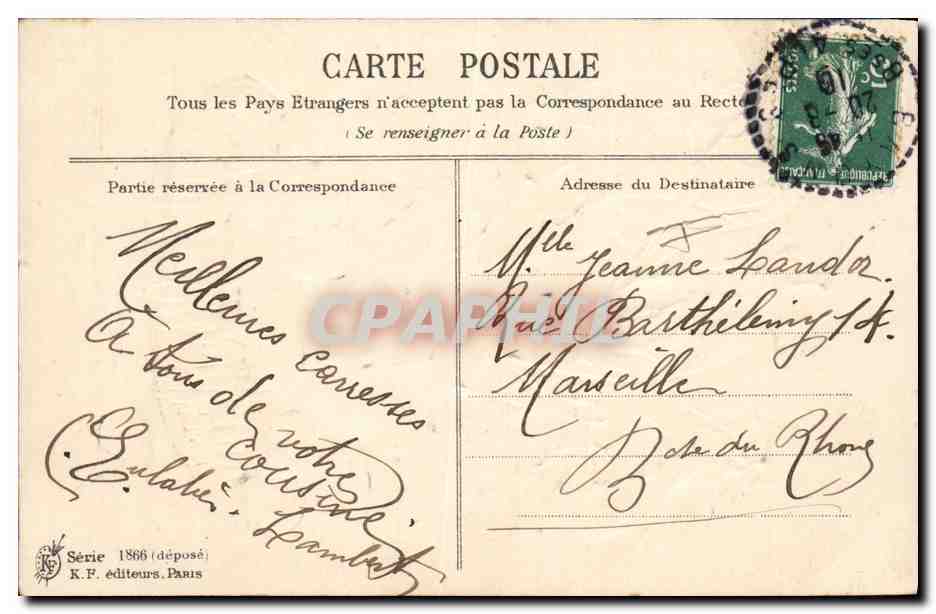 CARTE POSTALE
Tous les Pays Etrangers n'acceptent pas la Correspondance au Recto
(Se renseigner à la Poste)
Partie réservée à la Correspondance
Meilleures caresses
A tous de votre
cousine
Eulalie Lambert
Série 1866 (déposé)
K.F. éditeurs, PARIS
KF
Adresse du Destinataire
Mlle Jeanne Landoz
Rue Barthélemy 14.
Marseille
B. du Rhone
REPUBLIQUE FRANÇAISE
POSTES
5 C
BSES ALPES
CPAPHIL